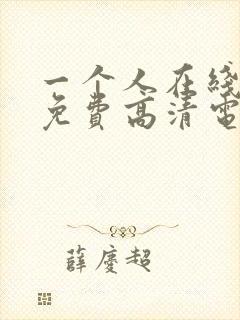 一个人在线
免费高清电
薛庆超